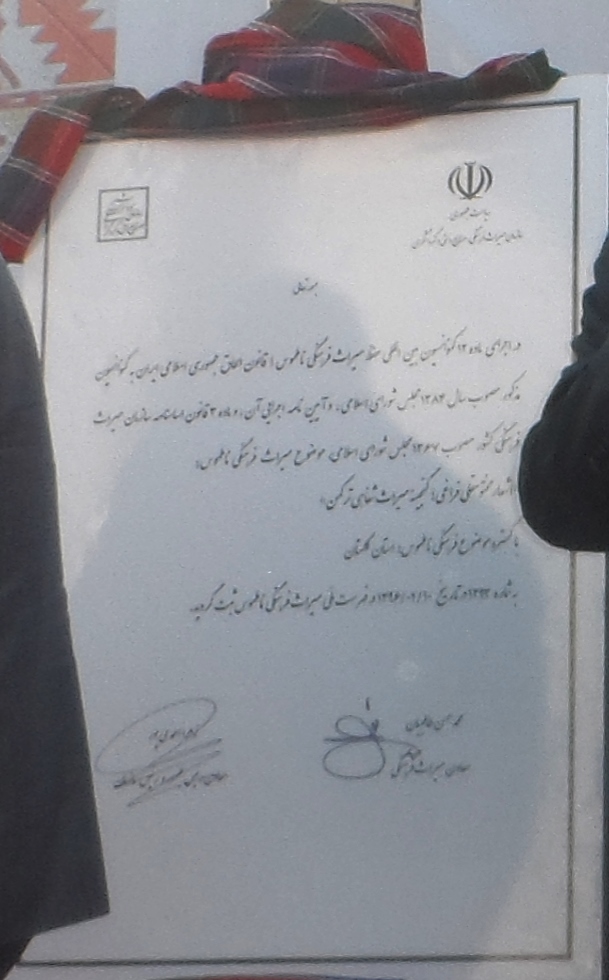 ریاست جمهوری
سازمان میراث فرهنگی، صنایع دستی و گردشگری
بسمه تعالی
در اجرای ماده ۱۲ کنوانسیون بین المللی حفظ میراث فرهنگی ناملموس (قانون الحاق جمهوری اسلامی ایران به کنوانسیون
مذکور مصوب سال ۱۳۸۴ مجلس شورای اسلامی، و آیین نامه اجرایی آن، و ماده ۳ قانون اساسنامه سازمان میراث
فرهنگی کشور مصوب ۱۳۶۷ مجلس شورای اسلامی، موضوع میراث فرهنگی ناملموس:
اشعار مختومقلی فراغی؛ گنجینه میراث شفاهی ترکمن
با گستره موضوع فرهنگی ناملموس: استان گلستان
به شماره در تاریخ در فهرست ملی میراث فرهنگی ناملموس ثبت گردید.
محمد حسن طالبیان
معاون میراث فرهنگی
معاون رییس جمهور و رییس سازمان